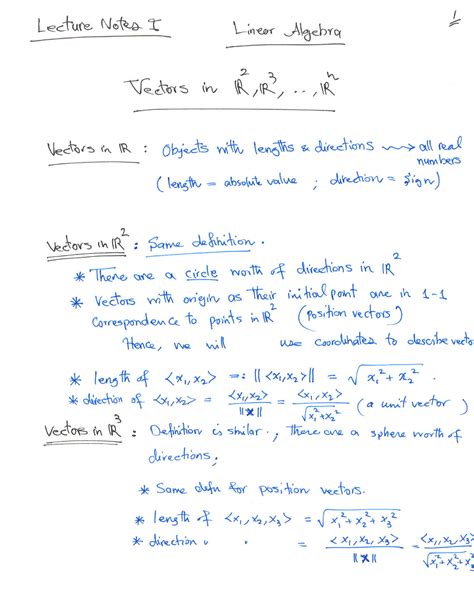 Lecture Notes I Linear Algebra 1
Vectors in ℝ², ℝ³, ..., ℝⁿ
Vectors in ℝ : Objects with lengths & directions ⟿ all real
numbers
(length = absolute value ; direction = sign)
Vectors in ℝ² : Same definition.
* There are a circle worth of directions in ℝ²
* Vectors with origin as their initial point are in 1-1
correspondence to points in ℝ² (Position vectors)
Hence, we will use coordinates to describe vecto
* length of <x₁,x₂> =: ||<x₁,x₂>|| = √(x₁² + x₂²) .
* direction of <x₁,x₂> = <x₁,x₂>/||x|| = <x₁,x₂>/√(x₁²+x₂²) (a unit vector)
Vectors in ℝ³ : Definition is similar., There are a sphere worth of
directions.
* Same defn for position vectors.
* length of <x₁,x₂,x₃> = √(x₁²+x₂²+x₃²)
* direction = <x₁,x₂,x₃>/||x|| = <x₁,x₂,x₃>/√(x₁²+x₂²+x₃²)